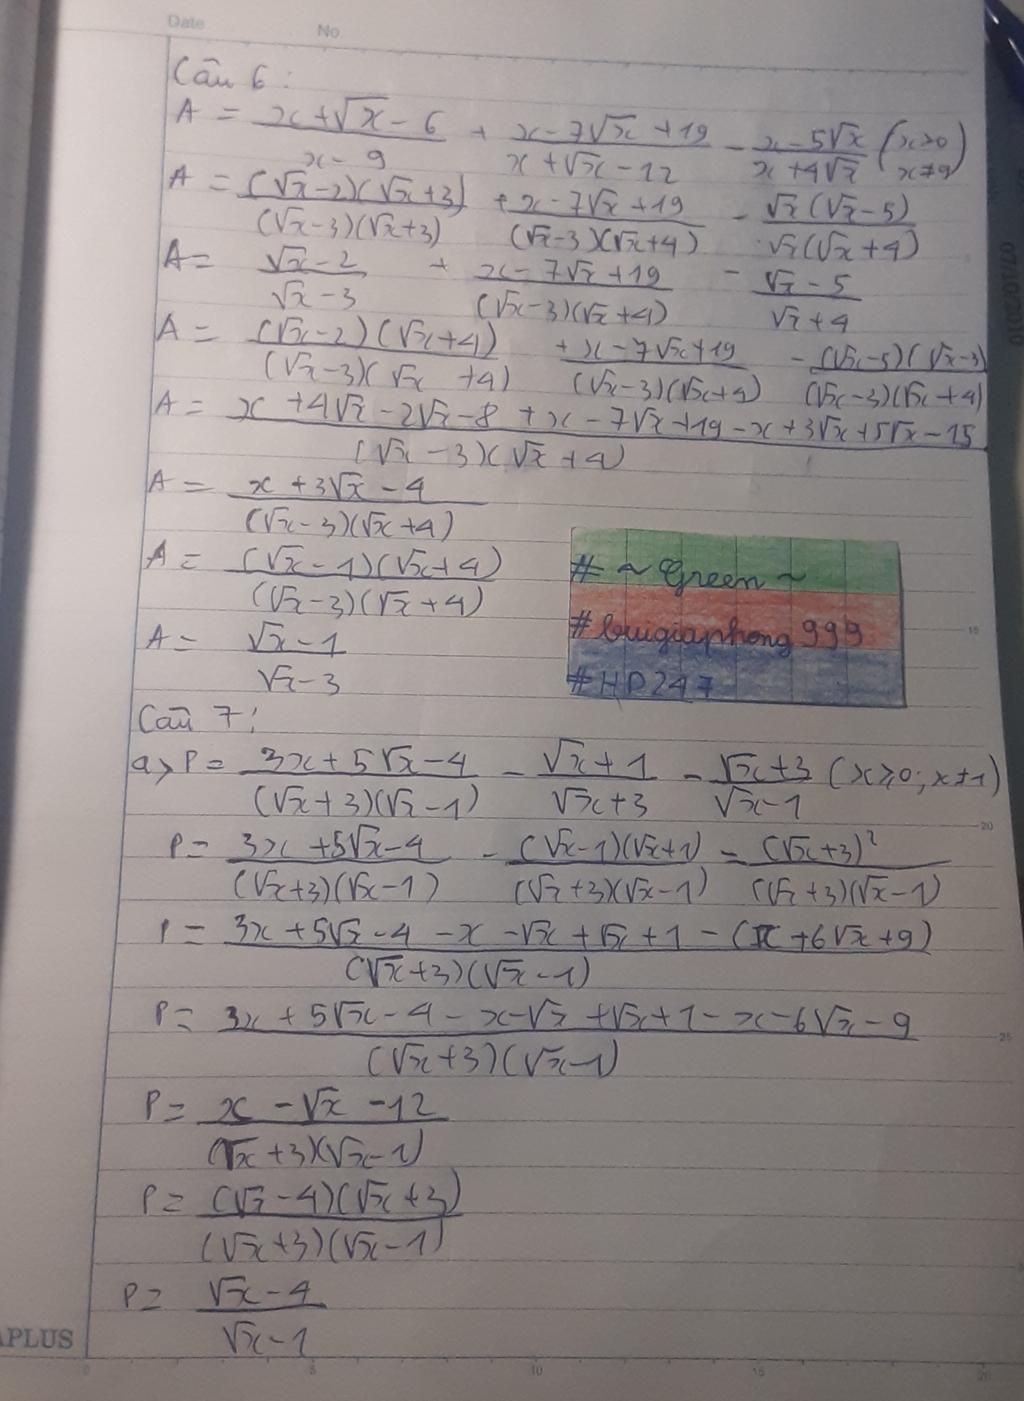 Date No
Câu 6:
A = (x+√x-6)/(x-9) + (x-7√x+19)/(x+√x-12) - (x-5√x)/(x+4√x) (x>0 x≠9)
A = ((√x-2)(√x+3))/((√x-3)(√x+3)) + (x-7√x+19)/((√x-3)(√x+4)) - (√x(√x-5))/(√x(√x+4))
A = (√x-2)/(√x-3) + (x-7√x+19)/((√x-3)(√x+4)) - (√x-5)/(√x+4)
A = ((√x-2)(√x+4))/((√x-3)(√x+4)) + (x-7√x+19)/((√x-3)(√x+4)) - ((√x-5)(√x-3))/((√x-3)(√x+4))
A = (x+4√x-2√x-8+x-7√x+19-x+3√x+5√x-15)/((√x-3)(√x+4))
A = (x+3√x-4)/((√x-3)(√x+4))
A = ((√x-1)(√x+4))/((√x-3)(√x+4))
A = (√x-1)/(√x-3)
# ~ Green ~
# buigiaphong999
# HP247
Câu 7:
a> P = (3x+5√x-4)/((√x+3)(√x-1)) - (√x+1)/(√x+3) - (√x+3)/(√x-1) (x≥0; x≠1)
P = (3x+5√x-4)/((√x+3)(√x-1)) - ((√x-1)(√x+1))/((√x+3)(√x-1)) - (√x+3)²/((√x+3)(√x-1))
P = (3x+5√x-4-x-√x+√x+1-(x+6√x+9))/((√x+3)(√x-1))
P = (3x+5√x-4-x-√x+√x+1-x-6√x-9)/((√x+3)(√x-1))
P = (x-√x-12)/((√x+3)(√x-1))
P = ((√x-4)(√x+3))/((√x+3)(√x-1))
P = (√x-4)/(√x-1)
APLUS
0 5 10 15 20
15
20
25